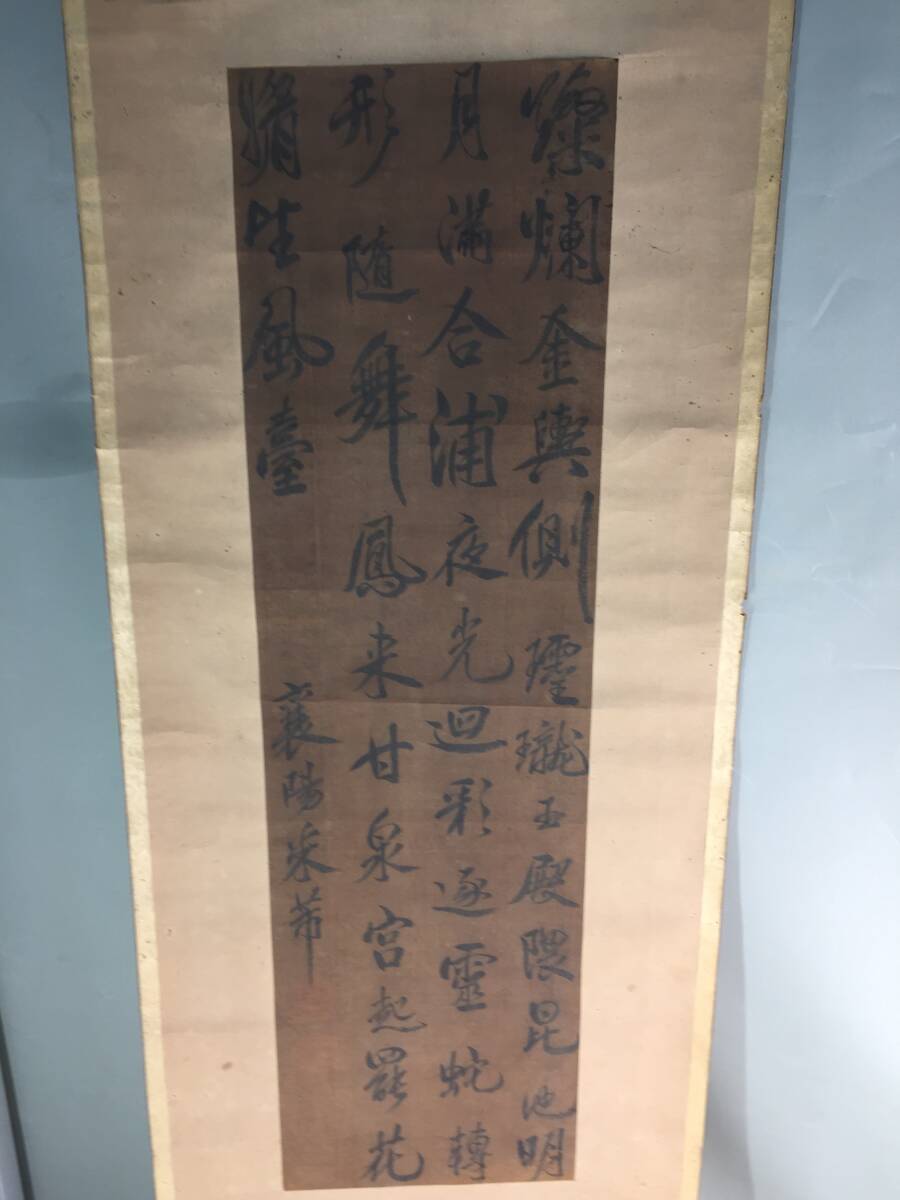 燦爛金輿側玲瓏玉殿隈昆池明
月滿合浦夜光迴彩逐靈蛇轉
形隨舞鳳来甘泉宮起罷花
媚望風臺
襄陽米芾